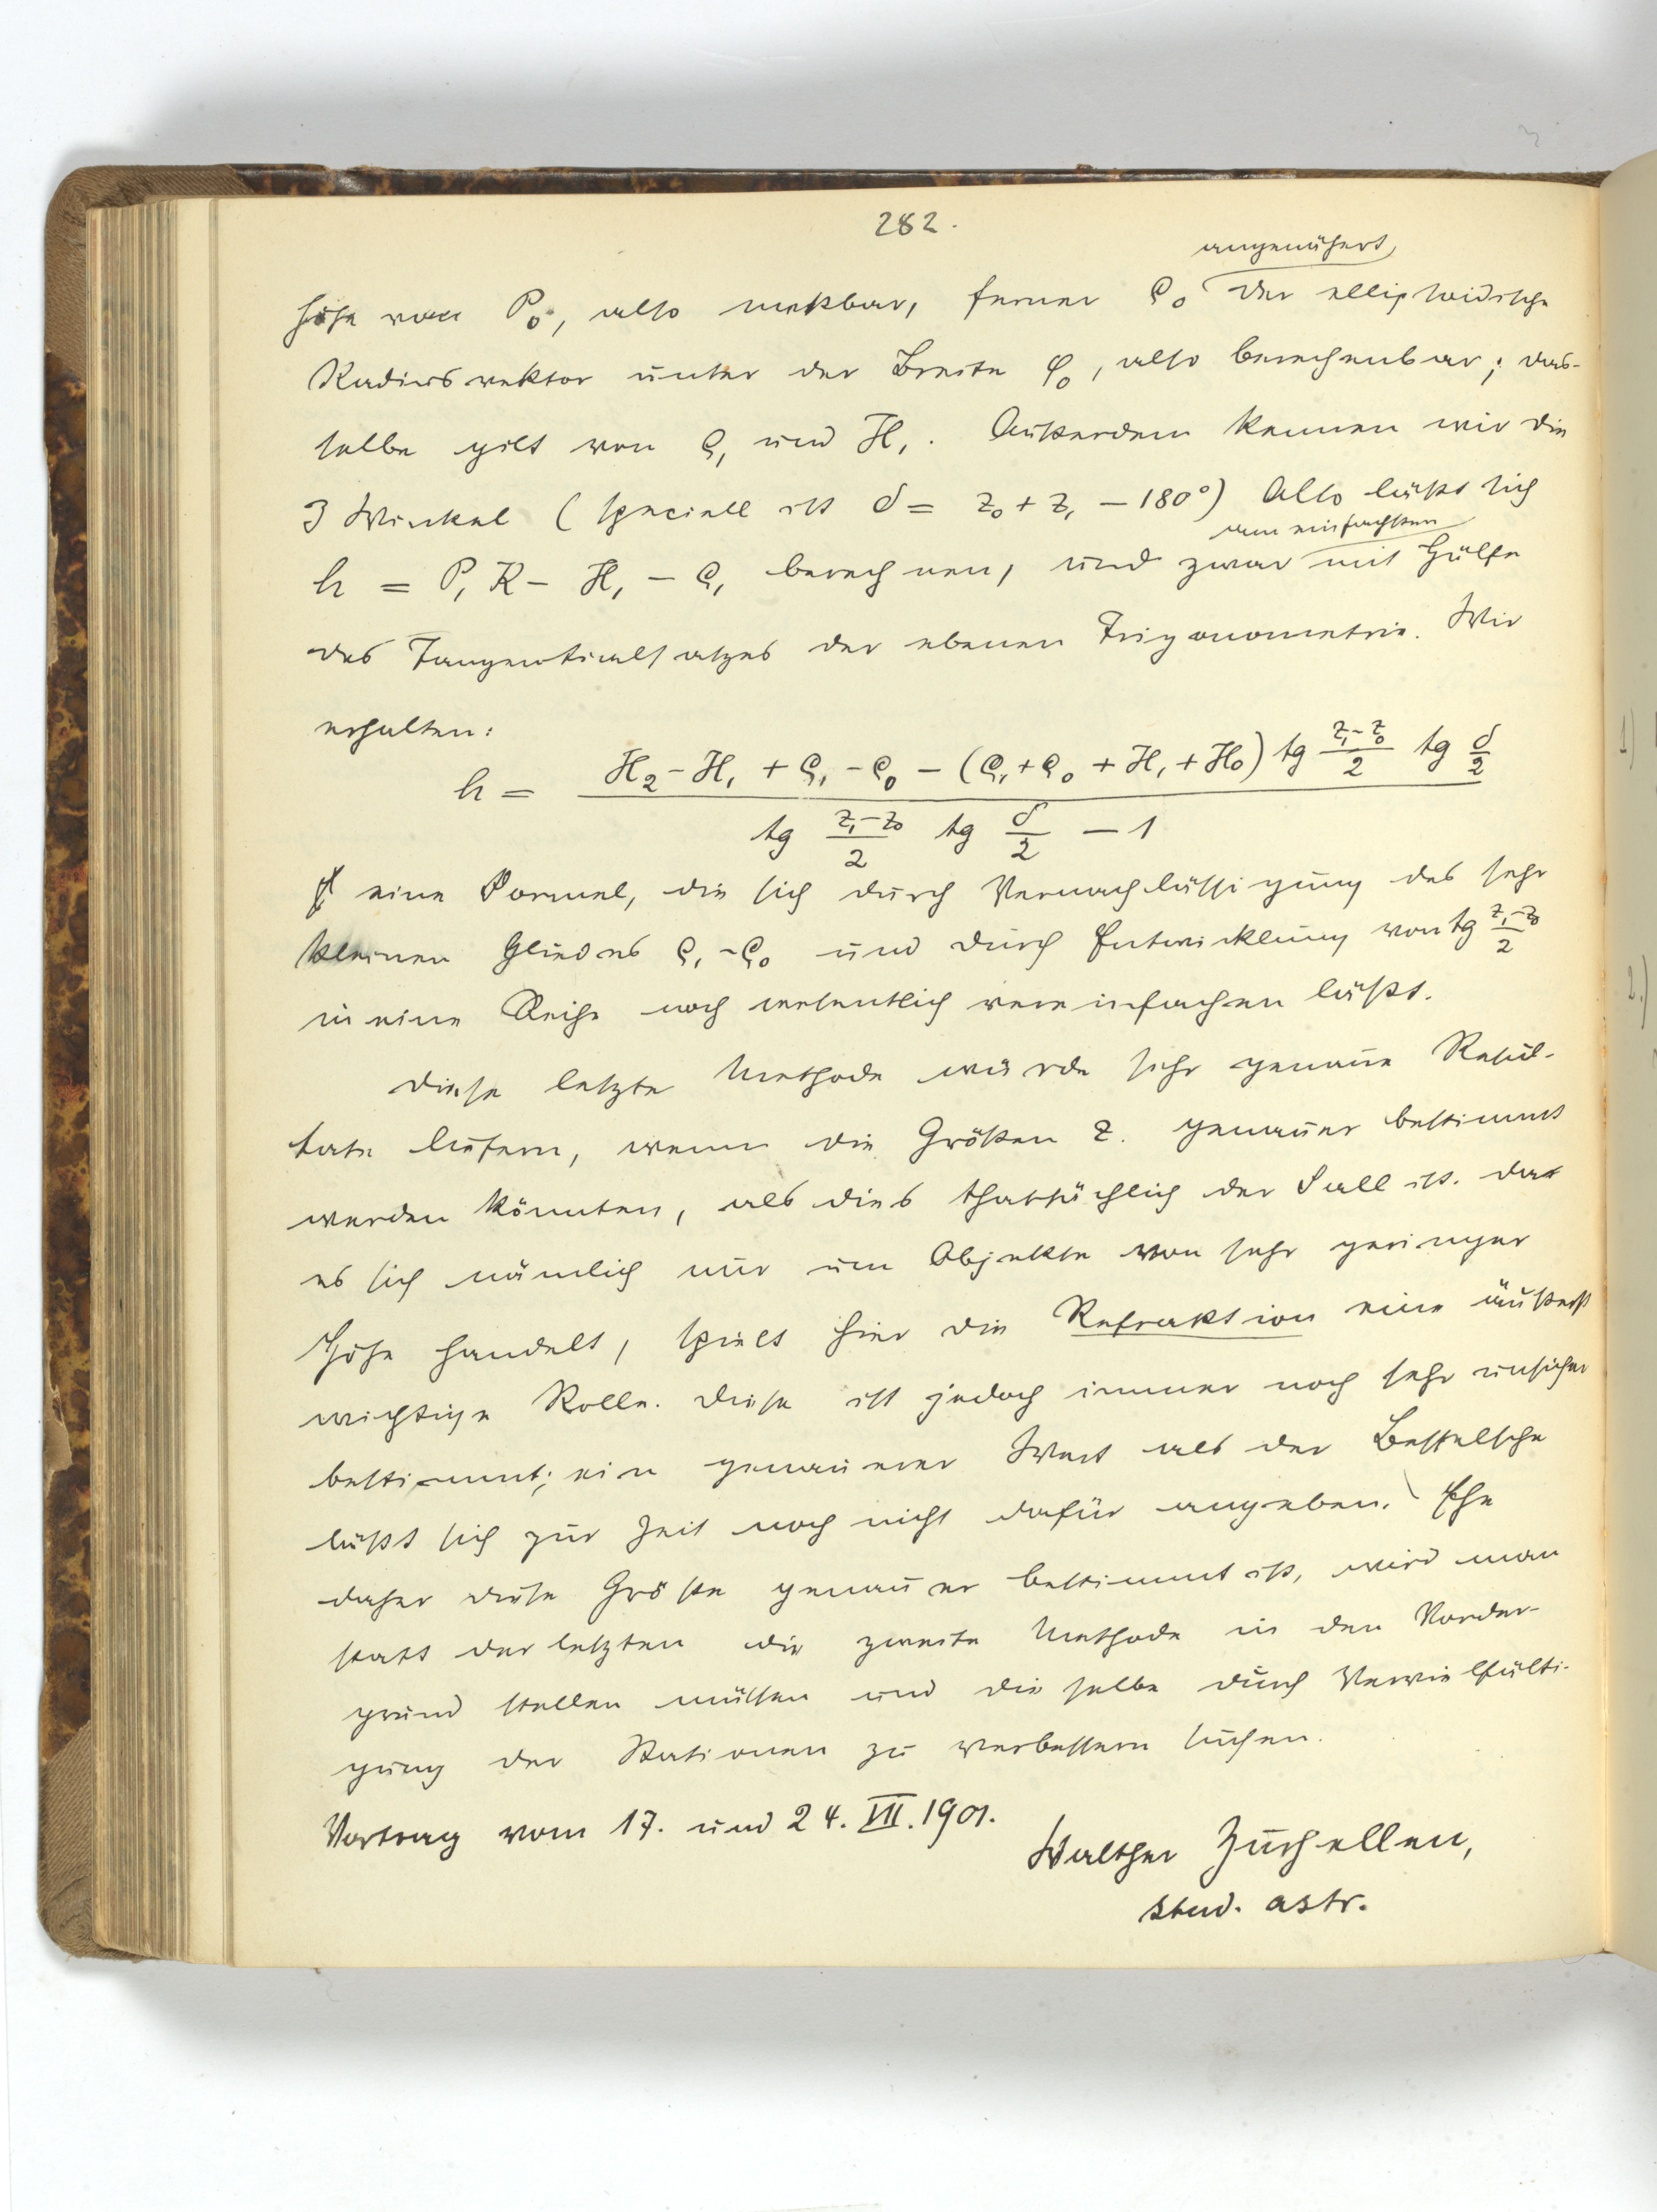 282.
angenähert
höhe von P₀, also meßbar, ferner ϱ₀ der ellipsoidische
Radiusvektor unter der Breite φ₀, also berechenbar; das-
selbe gilt von ϱ₁ und H₁. Außerdem kennen wir die
3 Winkel (speciell ist δ = z₀ + z₁ − 180°) Also läßt sich
am einfachsten
h = P₁R − H₁ − ϱ₁ berechnen, und zwar mit Hülfe
des Tangentialsatzes der ebenen Trigonometrie. Wir
erhalten:
h = (H₂ − H₁ + ϱ₁ − ϱ₀ − (ϱ₁ + ϱ₀ + H₁ + H₀) tg (z₁−z₀)/2 tg δ/2) / (tg (z₁−z₀)/2 tg δ/2 − 1)
eine Formel, die sich durch Vernachlässigung des sehr
kleinen Gliedes ϱ₁ − ϱ₀ und durch Entwicklung von tg (z₁−z₀)/2
in eine Reihe noch wesentlich vereinfachen läßt.
Diese letzte Methode würde sehr genaue Resul-
tate liefern, wenn die Größen z. genauer bestimmt
werden könnten, als dies thatsächlich der Fall ist. Da
es sich nämlich nur um Objekte von sehr geringer
Höhe handelt, spielt hier die Refraktion eine äußerst
wichtige Rolle. Diese ist jedoch immer noch sehr unsicher
bestimmt; ein genauerer Wert als der Besselsche
läßt sich zur Zeit noch nicht dafür angeben. Ehe
daher diese Größe genauer bestimmt ist, wird man
statt der letzten die zweite Methode in den Vorder-
grund stellen müssen und dieselbe durch Vervielfälti-
gung der Stationen zu verbessern suchen.
Vortrag vom 17. und 24. VII. 1901.
Walther Zurhellen,
stud. astr.
1)
2.)